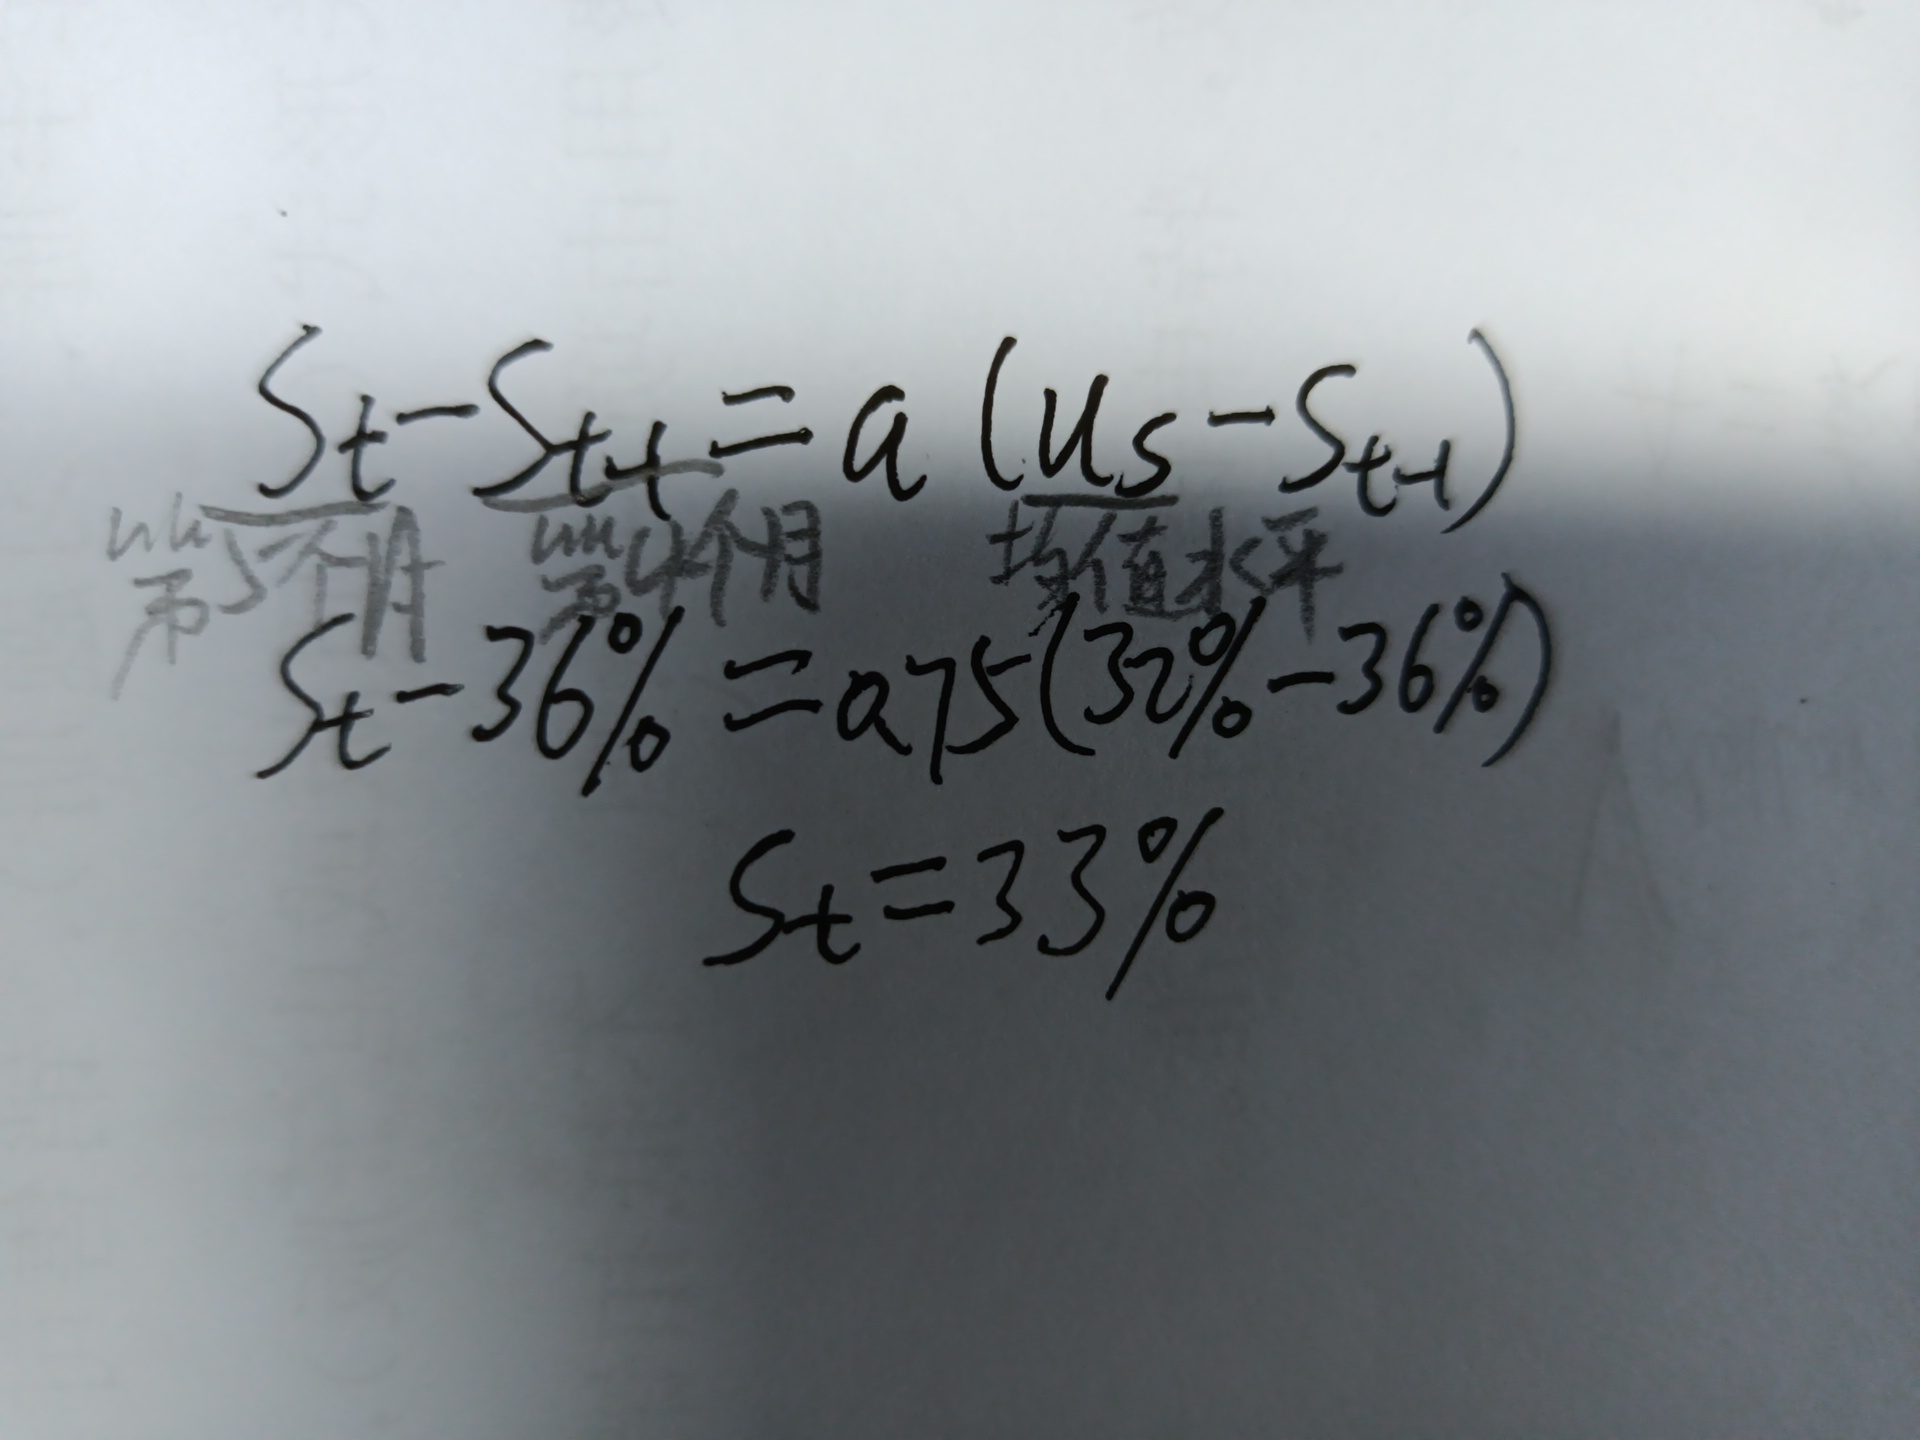 St-St-1=a(us-St-1)
第5个月 第4个月 均值水平
St-36%=0.75(32%-36%)
St=33%